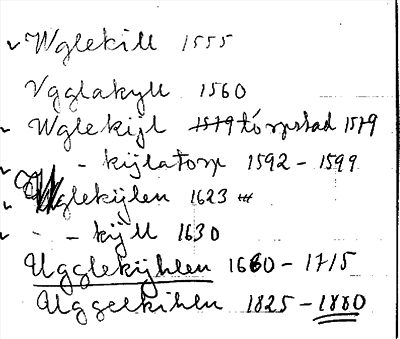 Wglekill 1555
Vgglakyll 1560
Wglekijl 1579 törpstad 1579
- kijlatorp 1592 - 1599
Uglekijlen 1623
- - kijll 1630
Ugglekijhlen 1660 - 1715
Uggelkihln 1825 - 1880